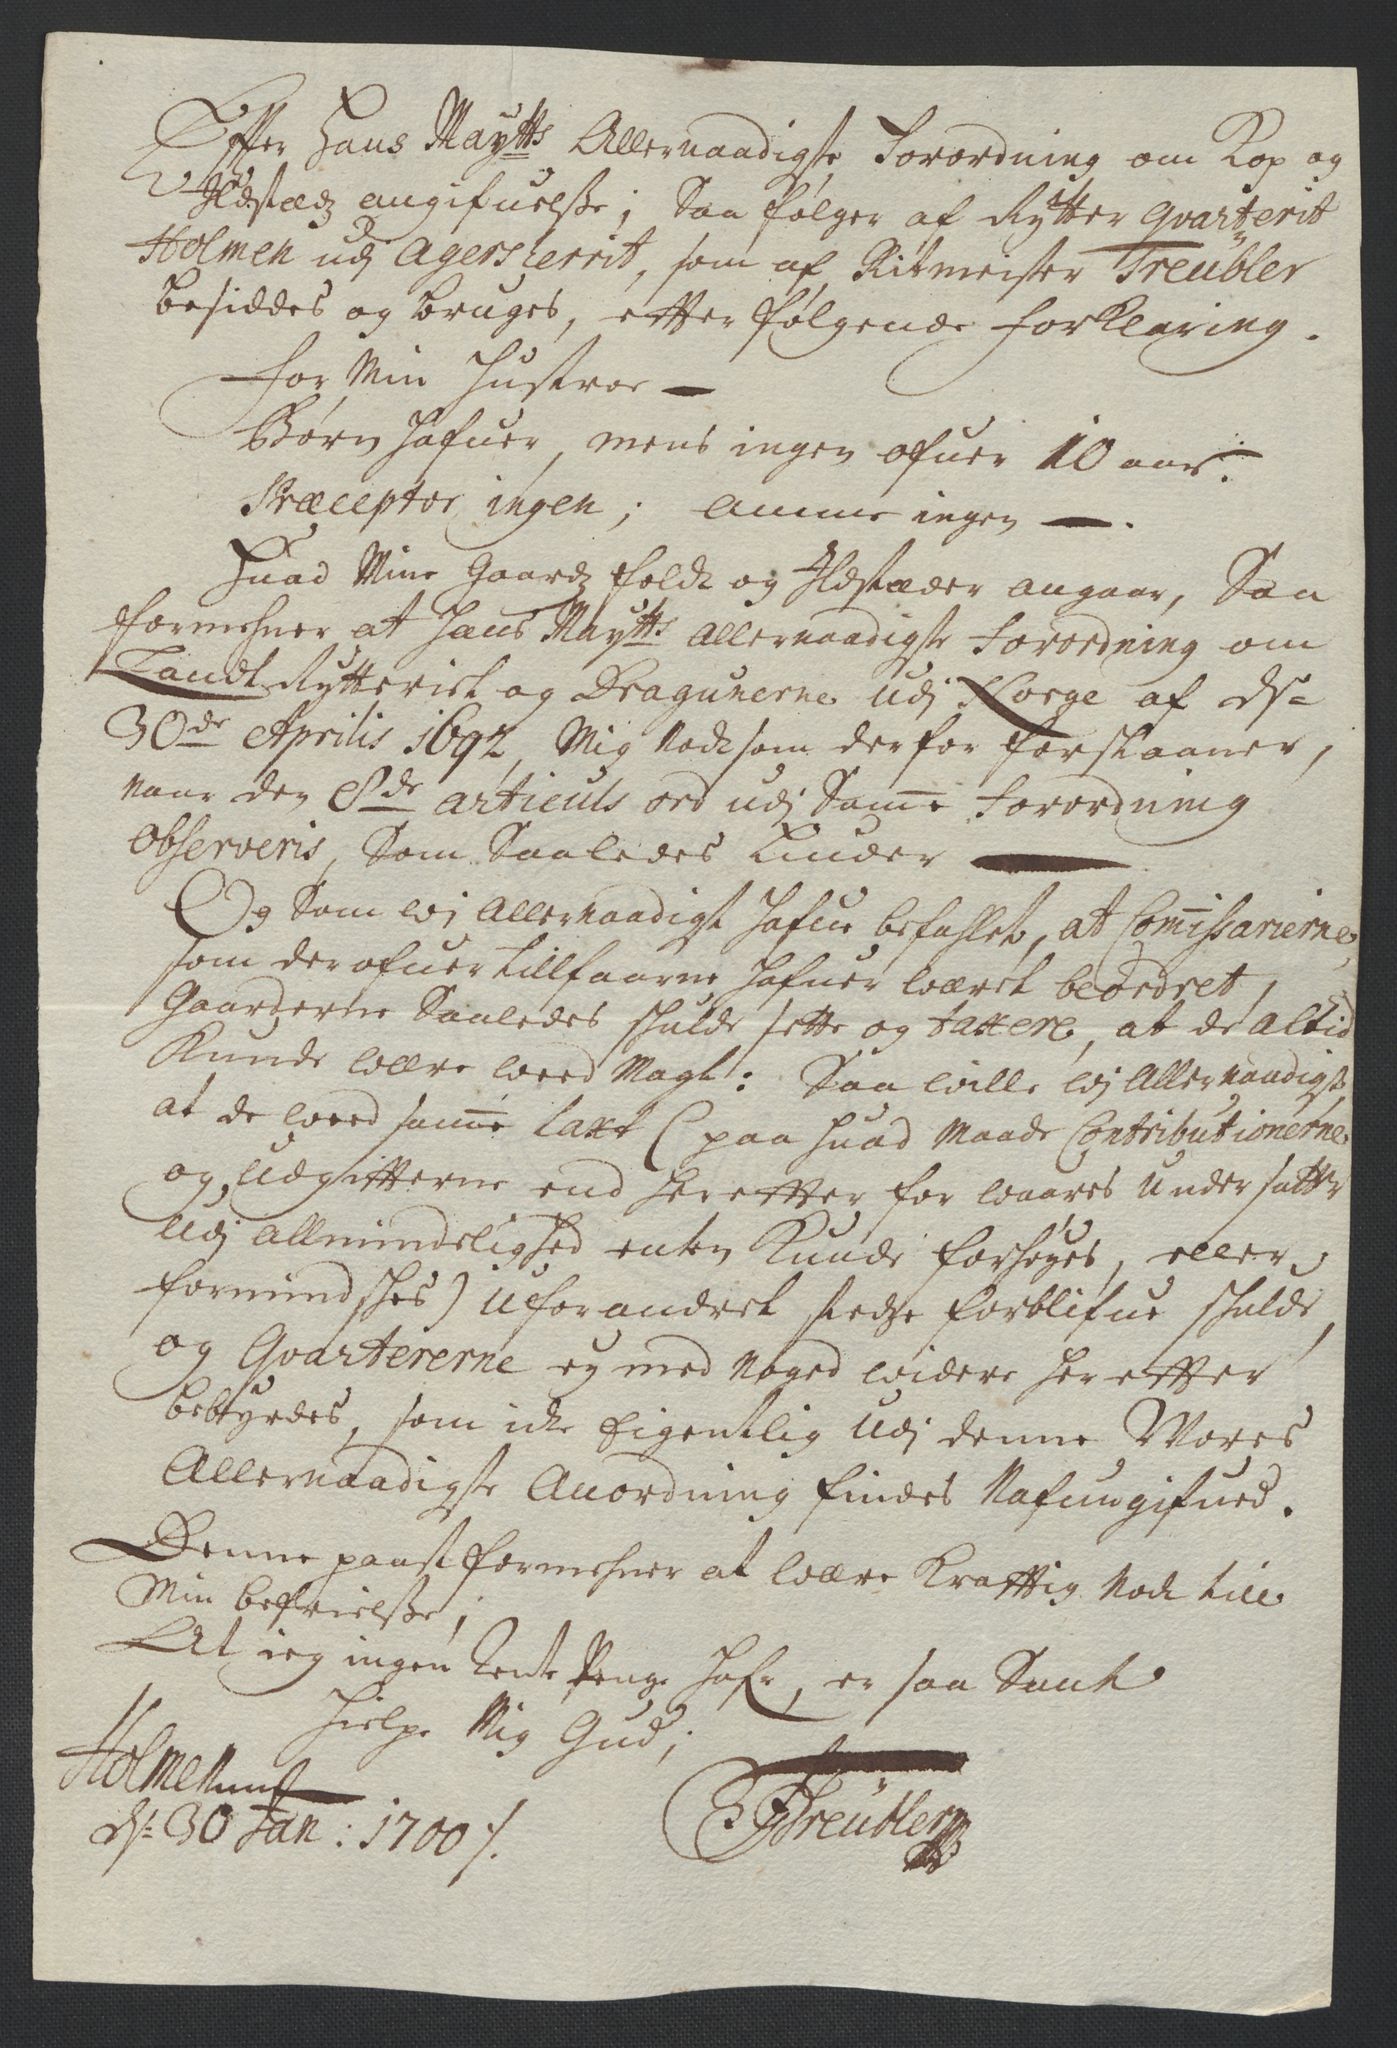 Effter Hans Maytts Allernaadigste Forordning om Kop og
Ildstædz angifuelsse; Saa følger af Rytter Qvarterit
Holmen udj Agersherrit, som af Ritmeister Treübler
besiddes og bruges, effter følgende forklaring.
For Min Hustroe —
Børn Hafuer, mens ingen ofuer 10 aar.
Præceptor ingen; Amme ingen —.
Huad Mine Gaardz folck og Ildstæder angaar, Saa
formehner at Hans Maytts Allernaadigste Forordning om
Landt Rytteriet og Dragunerne udj Norge af ds
30de Aprilis 1692, Mig Nocksom derfor forskaaner,
naar den 8de articuls ord udj Samme Forordning
observeris, Som Saaledes Liuder —
Og Som wj Allernaadigst Hafue befahlet, at Comissarierne,
som derofuer tillforne Hafuer wæret beordret,
Gaarderne Saaledes schulde sette og taxere, at de altid
Kunde wære weed Magt: Saa wille wj Allernaadigst
at de weed samme taxt (paa huad Maade Contributionerne
og Udgiffterne end Her effter for waares Undersatter
Udj allmindelighed enten Kunde forhøyes, eller
formindsches) uforandret stedze forblifue schulde,
og Qvartererne ey med Noged widere Her effter
bebyrdes, som icke Eigentlig Udj denne Wores
Allernaadigste Anordning findes Nafungifued.
Denne paast formehner at wære Krafftig Nock till
Min befrielsse;
At ieg ingen Rente Penge Hafr, er saa Sant
Hielpe Mig Gud;
Holmen
ds: 30 Jan: 1700 /.
Treübler